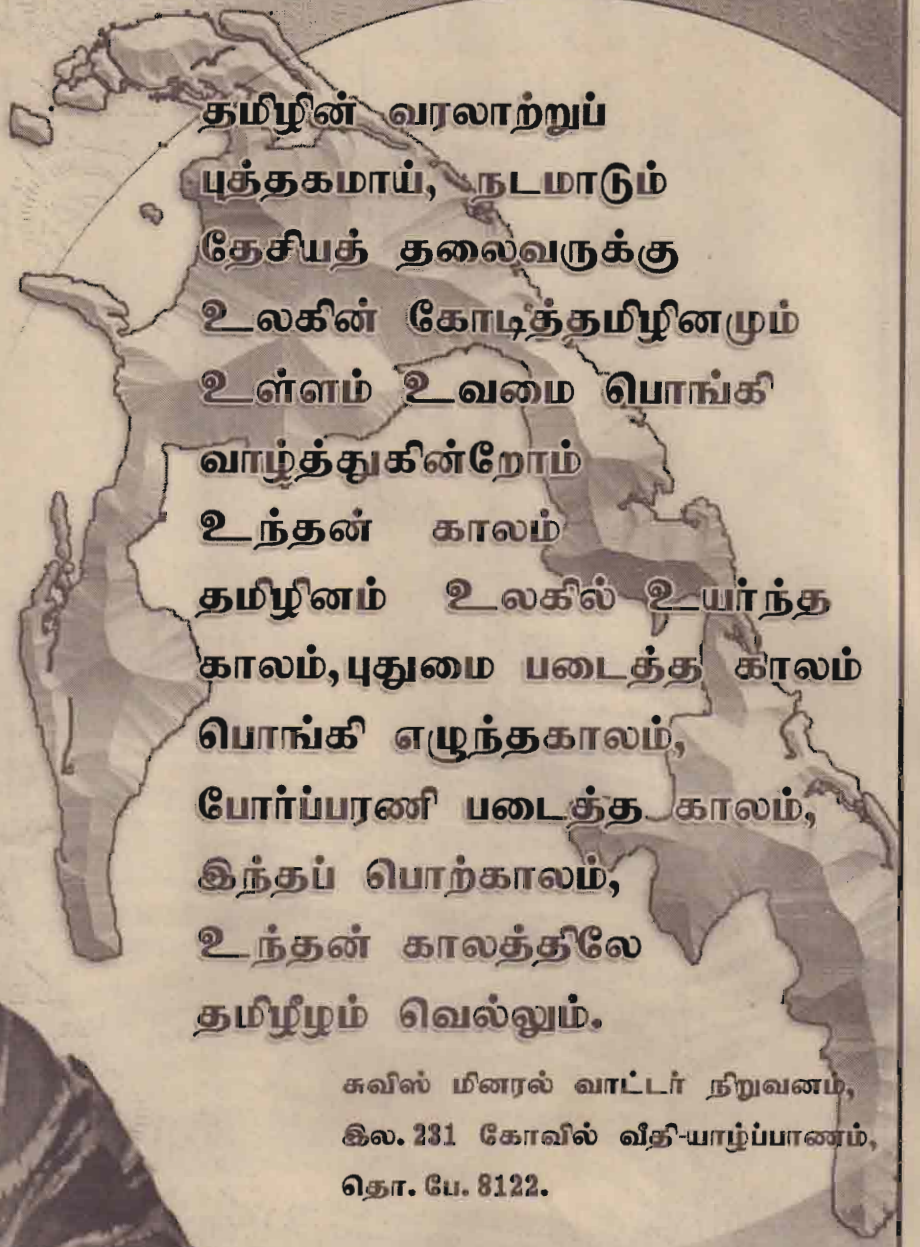 தமிழின் வரலாற்றுப்
புத்தகமாய், நடமாடும்
தேசியத் தலைவருக்கு
உலகின் கோடித்தமிழினமும்
உள்ளம் உவமை பொங்கி
வாழ்த்துகின்றோம்
உந்தன் காலம்
தமிழினம் உலகில் உயர்ந்த
காலம்,புதுமை படைத்த காலம்
பொங்கி எழுந்தகாலம்,
போர்ப்பரணி படைத்த காலம்,
இந்தப் பொற்காலம்,
உந்தன் காலத்திலே
தமிழீழம் வெல்லும்.
சுவிஸ் மினரல் வாட்டர் நிறுவனம்,
இல. 231 கோவில் வீதி-யாழ்ப்பாணம்,
தொ. பே. 8122.